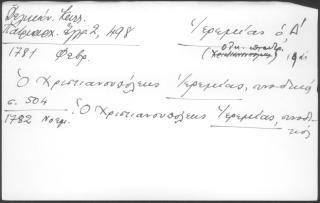 Δελικάν. Κωνσ.
Πατριαρχ. Ἔγγρ 2, 498
Ἱερεμίας ὁ Α΄
1781 Φεβρ.
Ὁ Χριστιανουπόλεως Ἱερεμίας, συνοδικός
σ. 504
1782 Νοεμ. Ὁ Χριστιανουπόλεως Ἱερεμίας, συνοδι-
κός